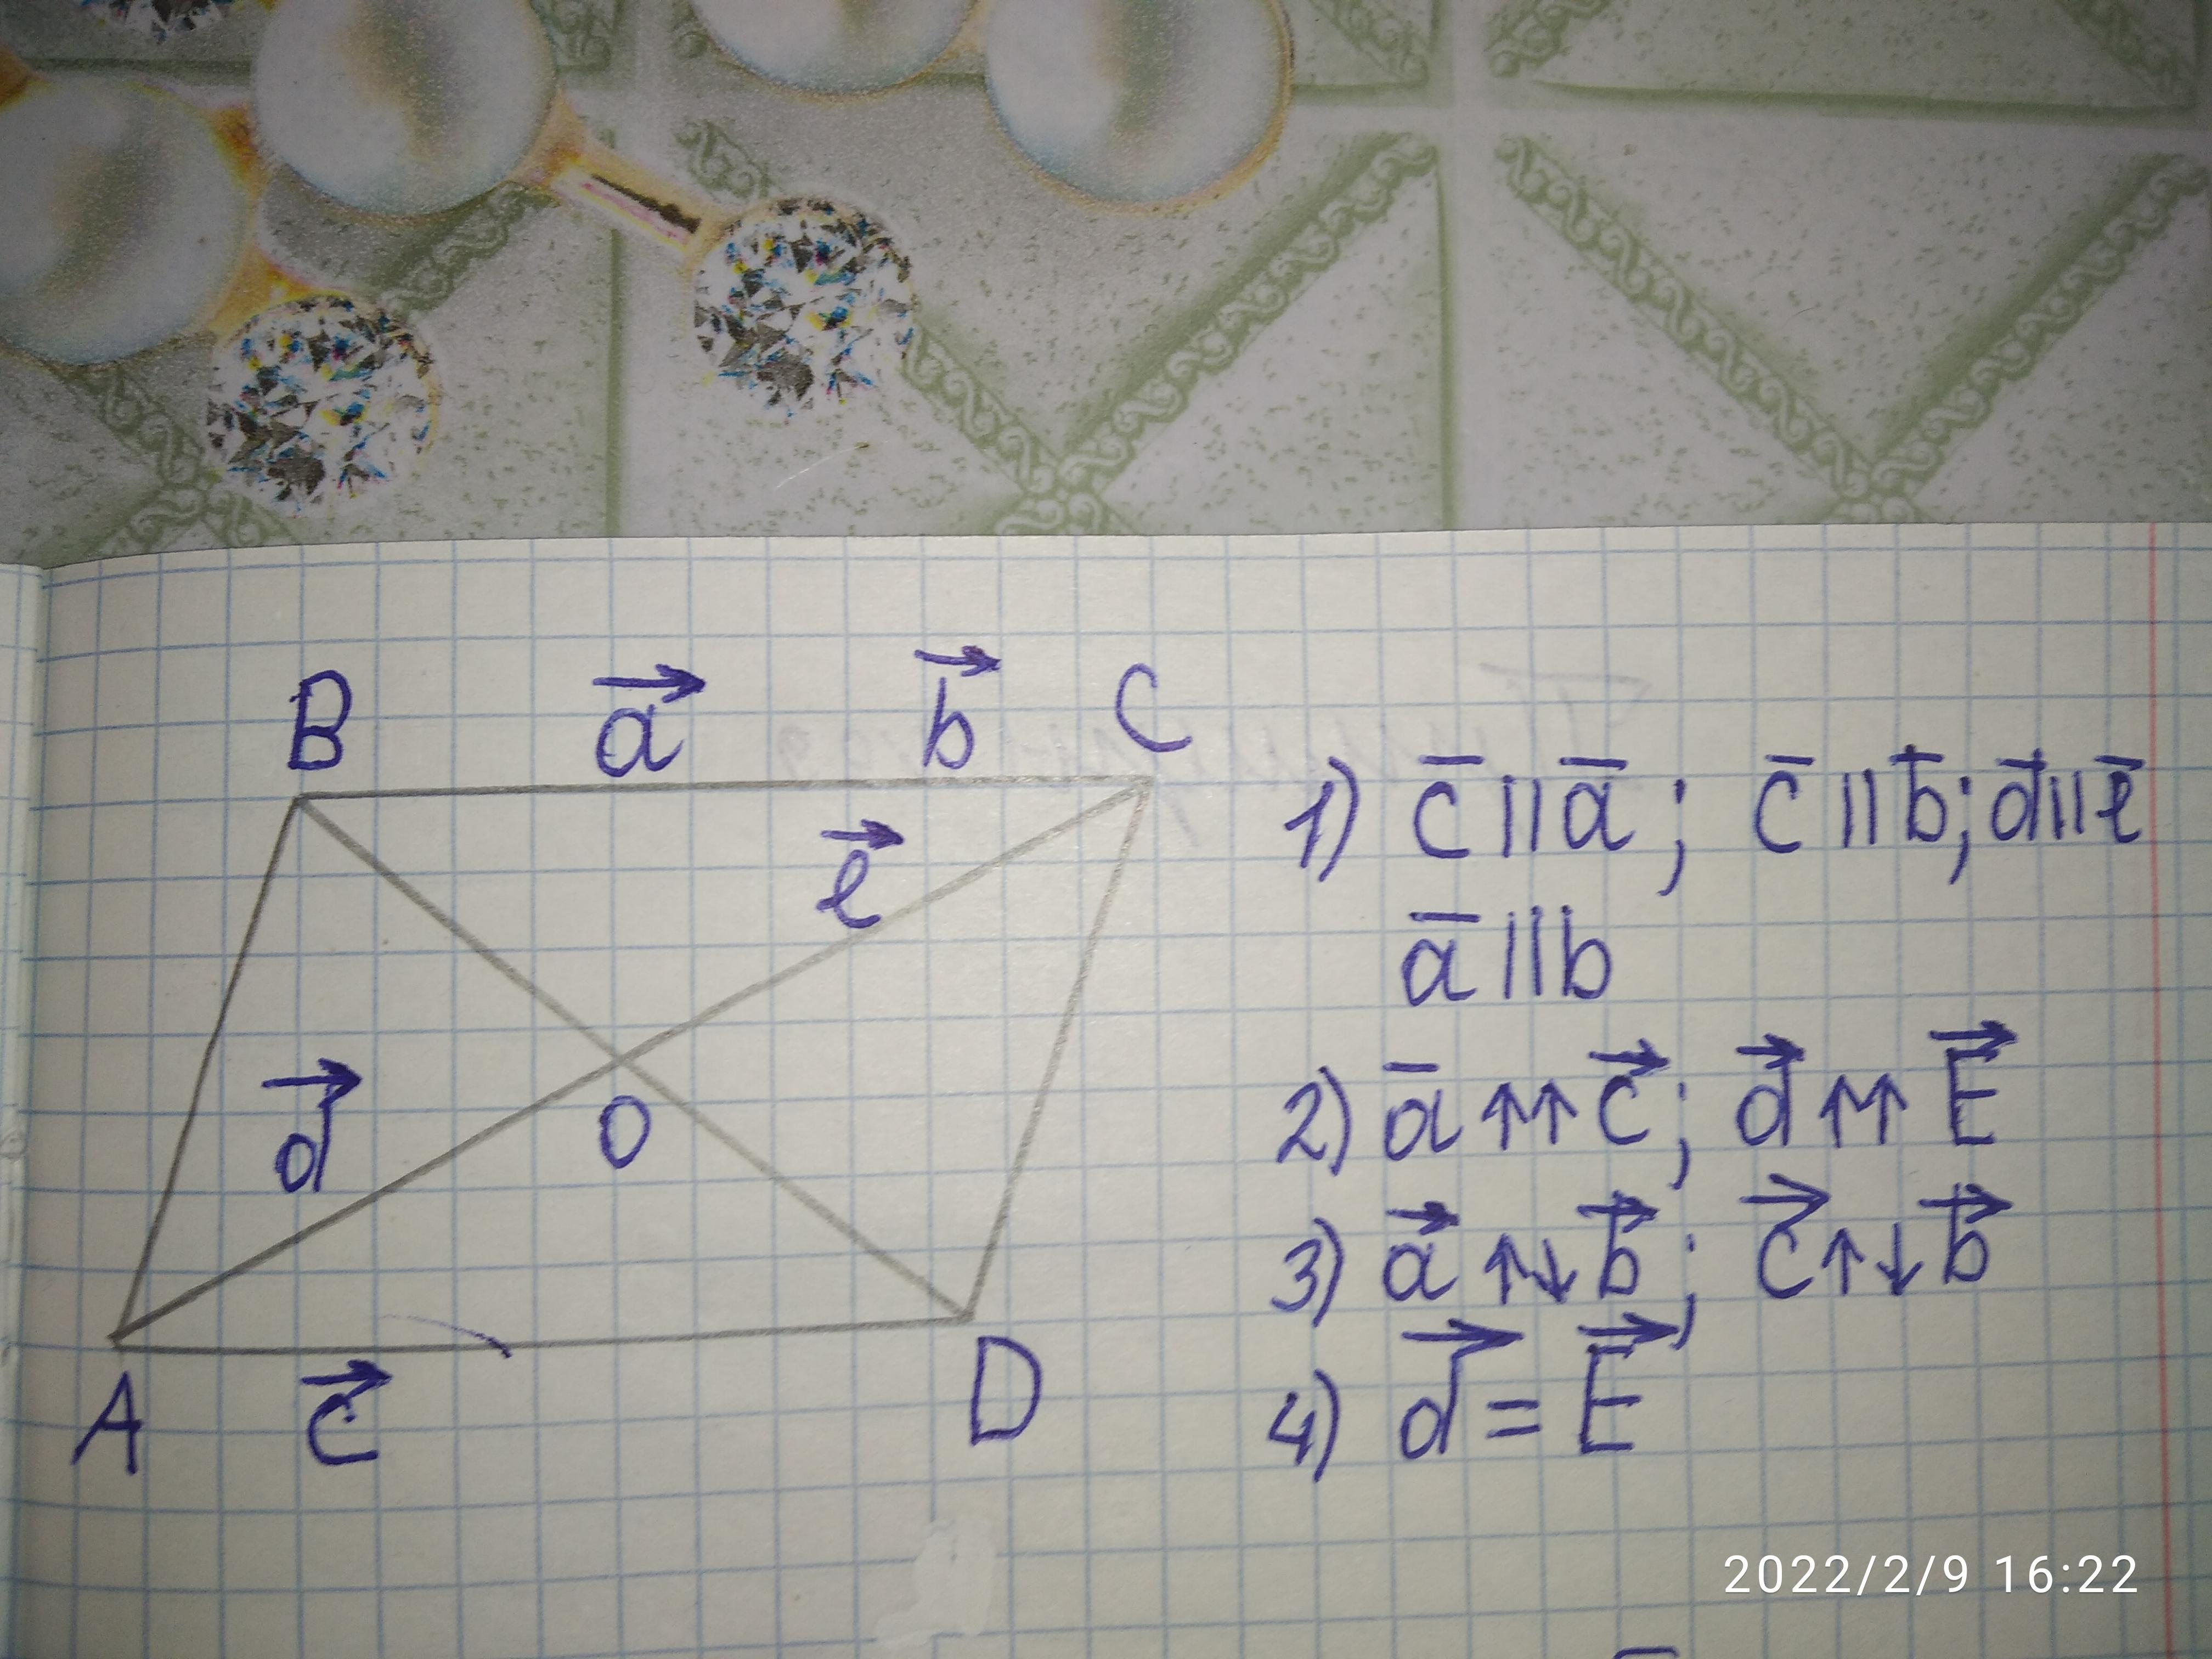 B a⃗ b⃗ C
e⃗
d⃗ O
A c⃗ D
1) c̅ || a̅ ; c̅ || b̅; d̅ || e̅
a̅ || b
2) a̅ ↑↑ c⃗; d⃗ ↑↑ E⃗
3) a⃗ ↑↓ b⃗; c⃗ ↑↓ b⃗
4) d⃗ = E⃗
2022/2/9 16:22